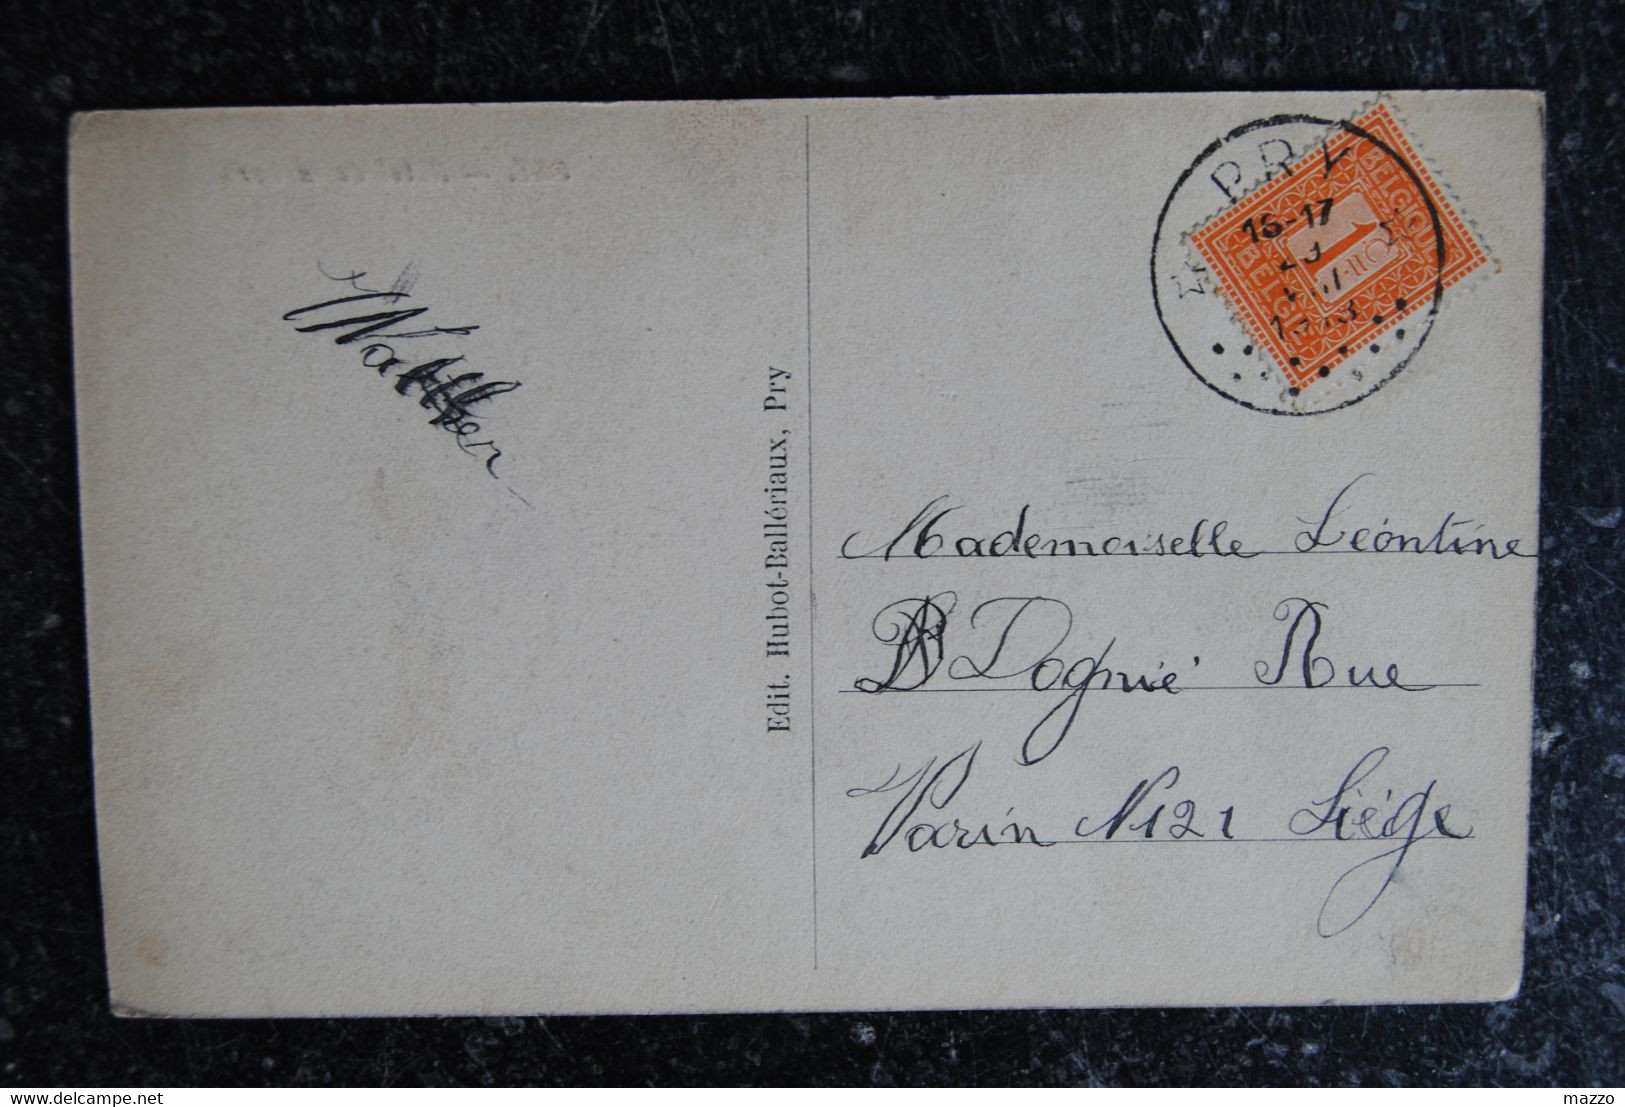 PRY
16-17
BELGIQUE
1
BELGIË
Walther
Edit. Hubot-Ballériaux, Pry
Mademoiselle Léontine
Dognié Rue
Varin N121 Liége
delcampe.net
mazzo